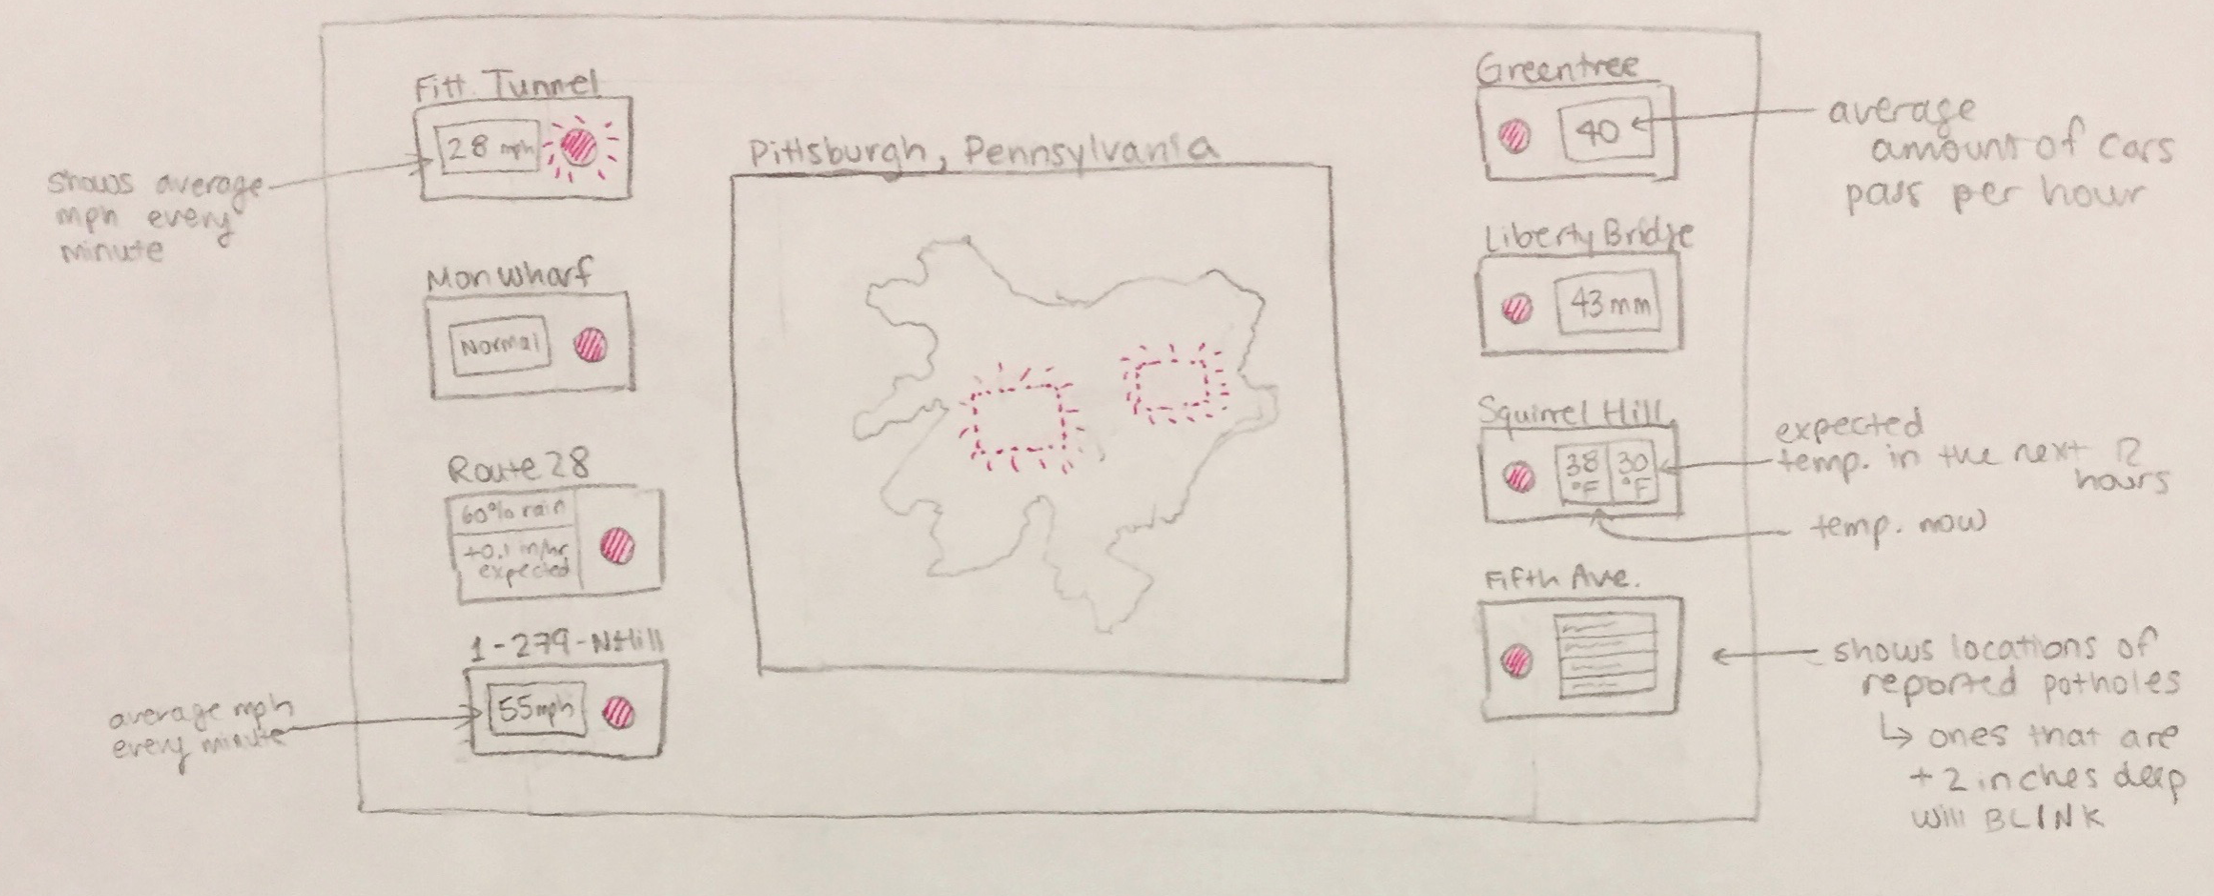 Fitt. Tunnel
28 mph
shows average
mph every
minute
Mon Wharf
Normal
Route 28
60% rain
+0.1 in/hr
expected
1-279-NHill
55mph
average mph
every minute
Pittsburgh, Pennsylvania
Greentree
40
average
amount of cars
pass per hour
Liberty Bridge
43 mm
Squirrel Hill
38 30
°F °F
expected
temp. in the next 12
hours
temp. now
Fifth Ave.
shows locations of
reported potholes
↳ ones that are
+2 inches deep
will BLINK